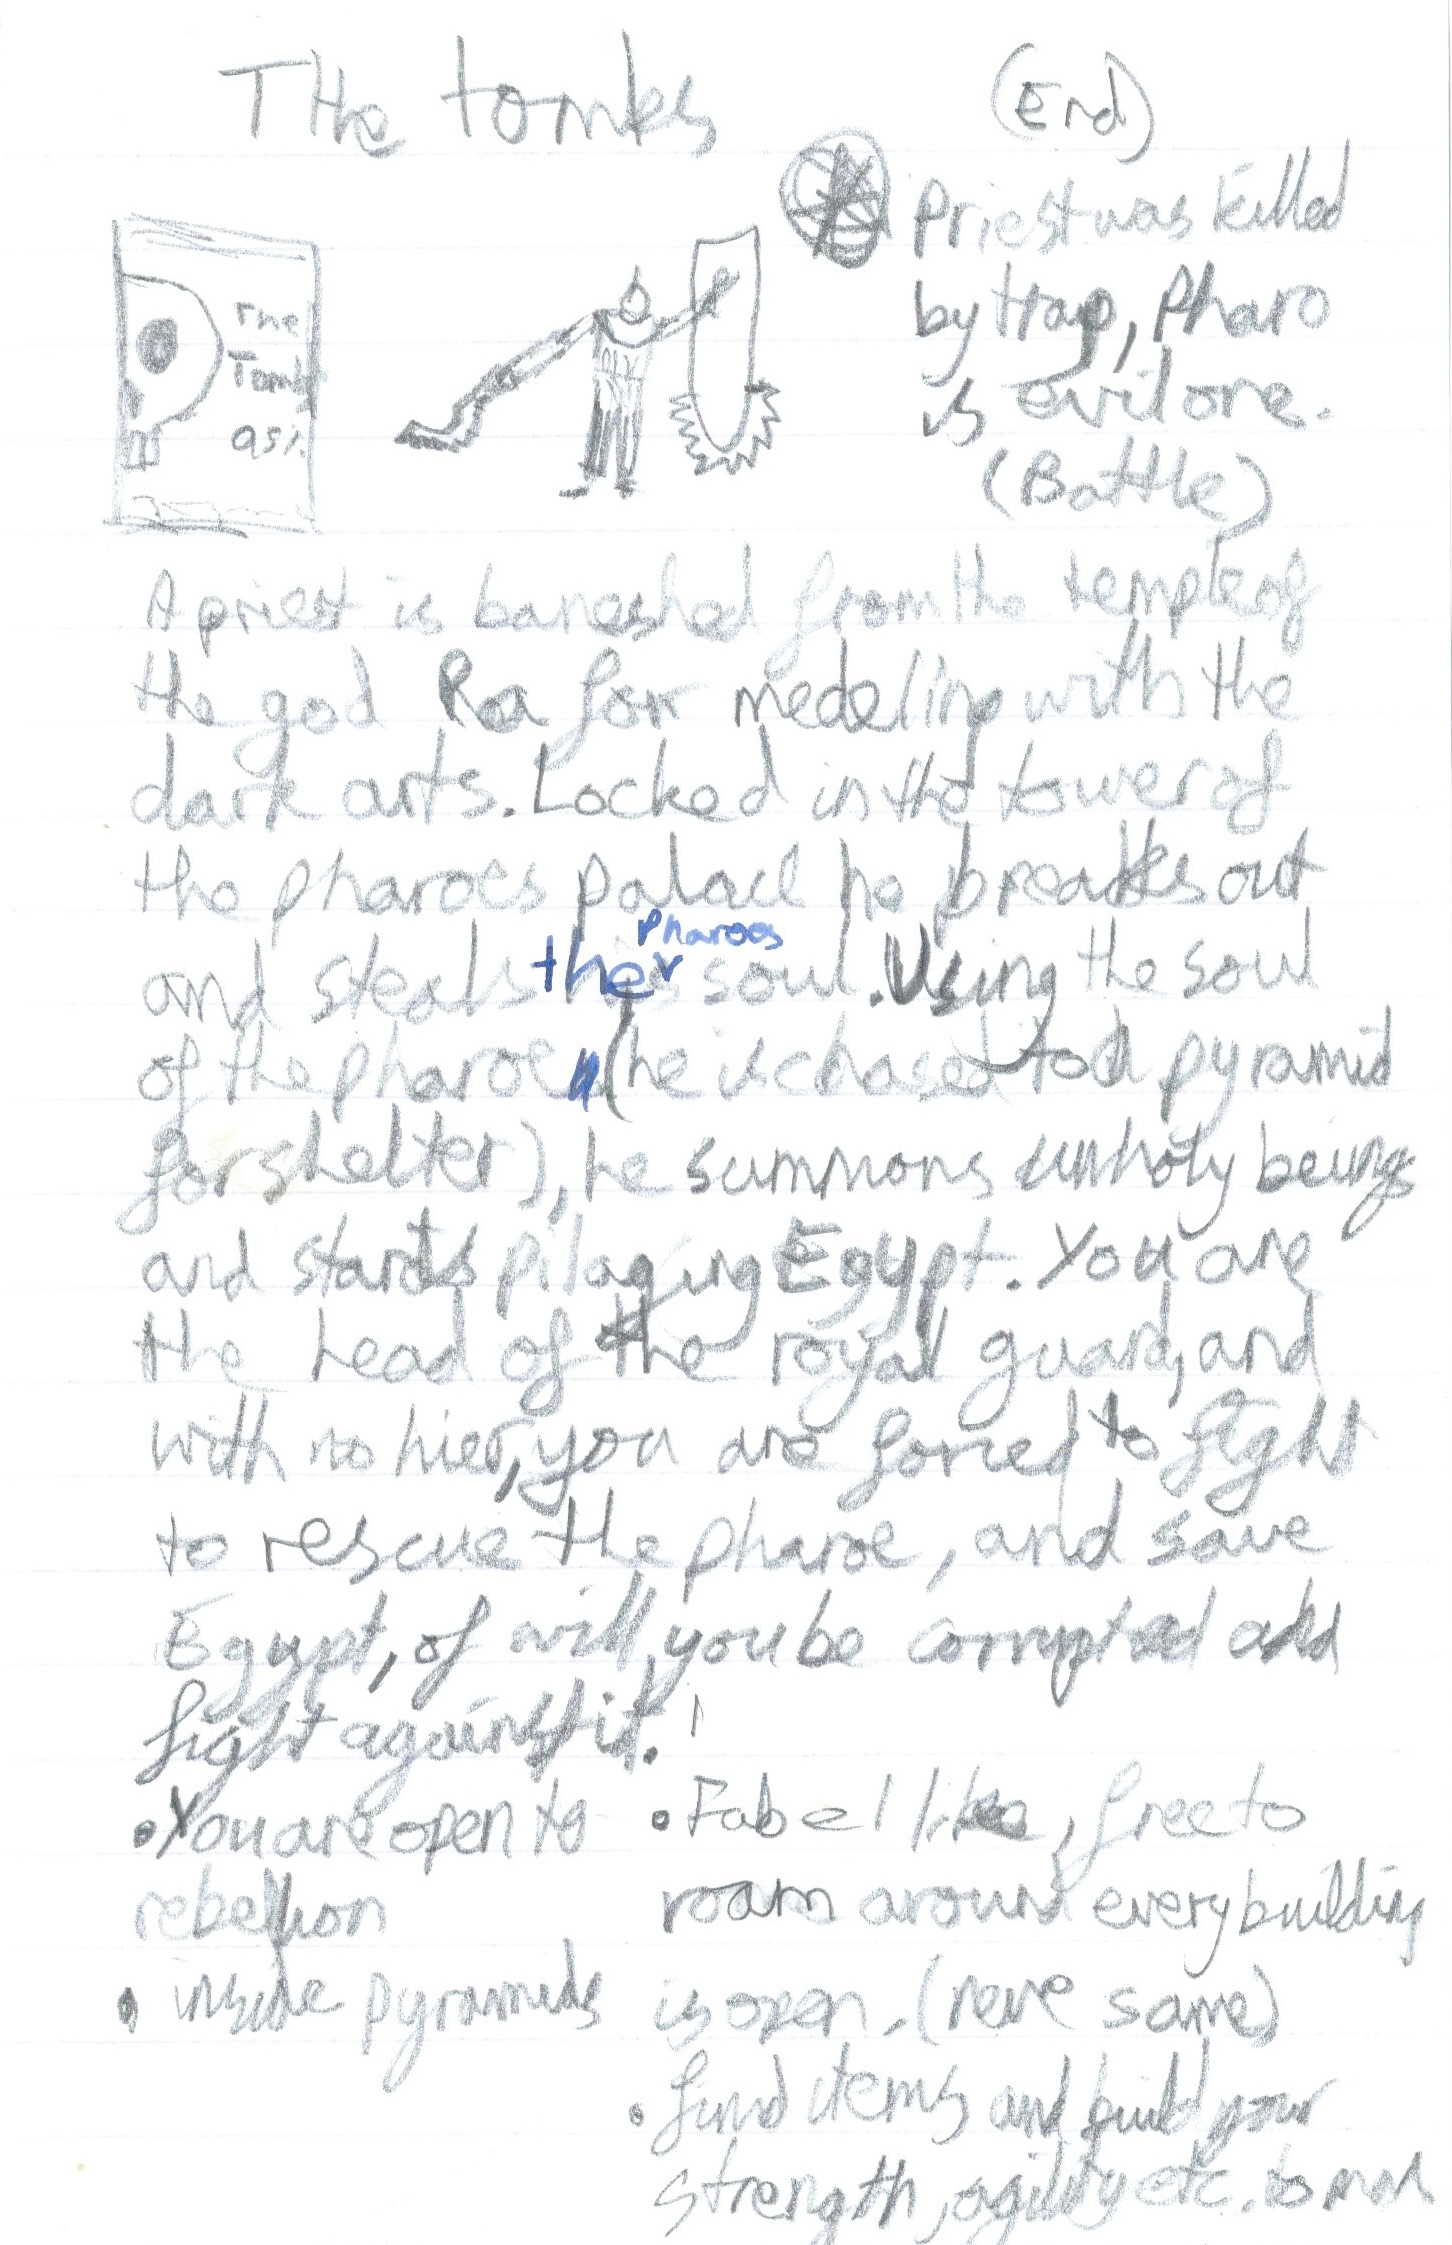 The tombs
(End)
Priest was killed
by trap, Pharo
is evil one.
(Battle)
The
Tombs
A priest is baneshed from the temple of
the god Ra for medeling with the
dark arts. Locked in the tower of
the pharoes palace he breaks out
and steals the Pharoes soul. Using the soul
of the pharoe (he is chased to a pyramid
for shelter), he summons unholy beings
and starts pilaging Egypt. You are
the head of the royal guard, and
with no hier, you are forced to fight
to rescue the pharoe, and save
Egypt, of will you be corrupted and
fight against it.
• You are open to
rebellion
• inside pyramids
• Fabel like, free to
roam around every building
is open. (none same)
• find items and build your
strength, agility etc. to